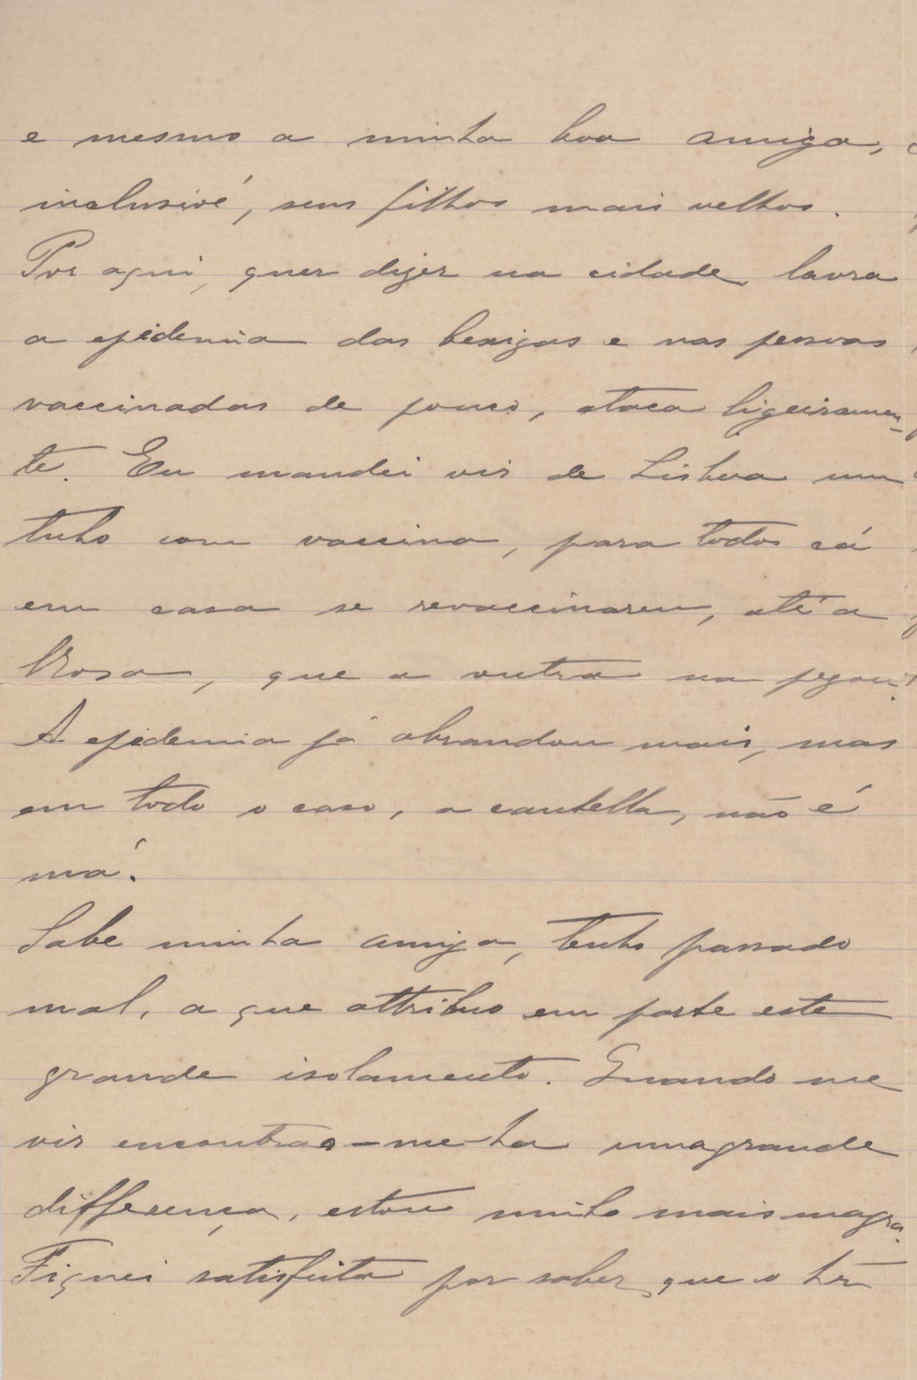 e mesmo a minha boa amiga,
inclusivé, seus filhos mais velhos.
Por aqui, quer dizer na cidade, lavra
a epidemia das bexigas e nas pessoas
vaccinadas de pouco, ataca ligeiramen-
te. Eu mandei vir de Lisboa um
tubo com vaccina, para todos cá
em casa se revaccinarem, até a
Rosa, que a outra na pegou.
A epidemia já abrandou mais, mas
em todo o caso, a cautella, não é
má.
Sabe minha amiga, tenho passado
mal, a que attribuo em parte este
grande isolamento. Quando me
vir encontrar-me-ha uma grande
differença, estou muito mais magra.
Fiquei satisfeita por saber que o